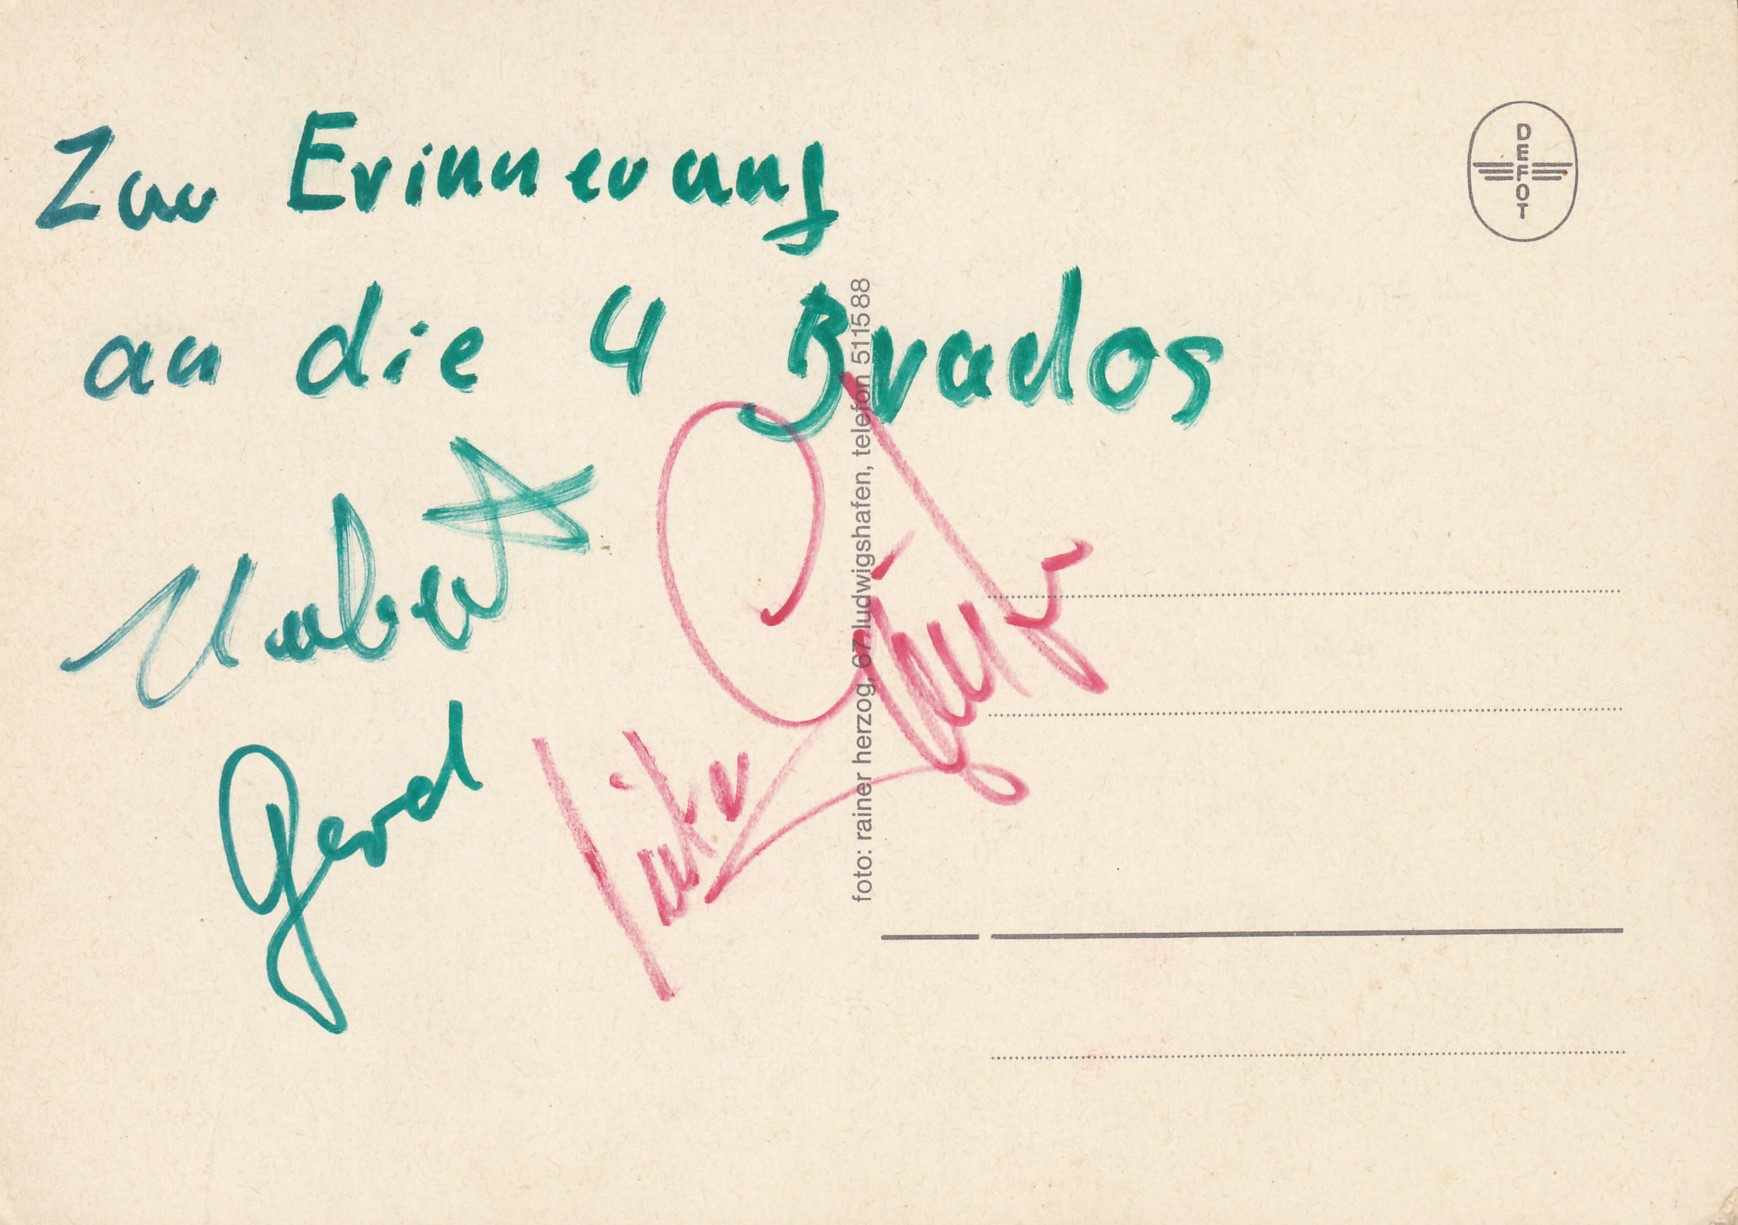 Zur Erinnerung
an die 4 Brados
Hubert
Gerd
DEFOT
foto: rainer herzog, 67 ludwigshafen, telefon 511588